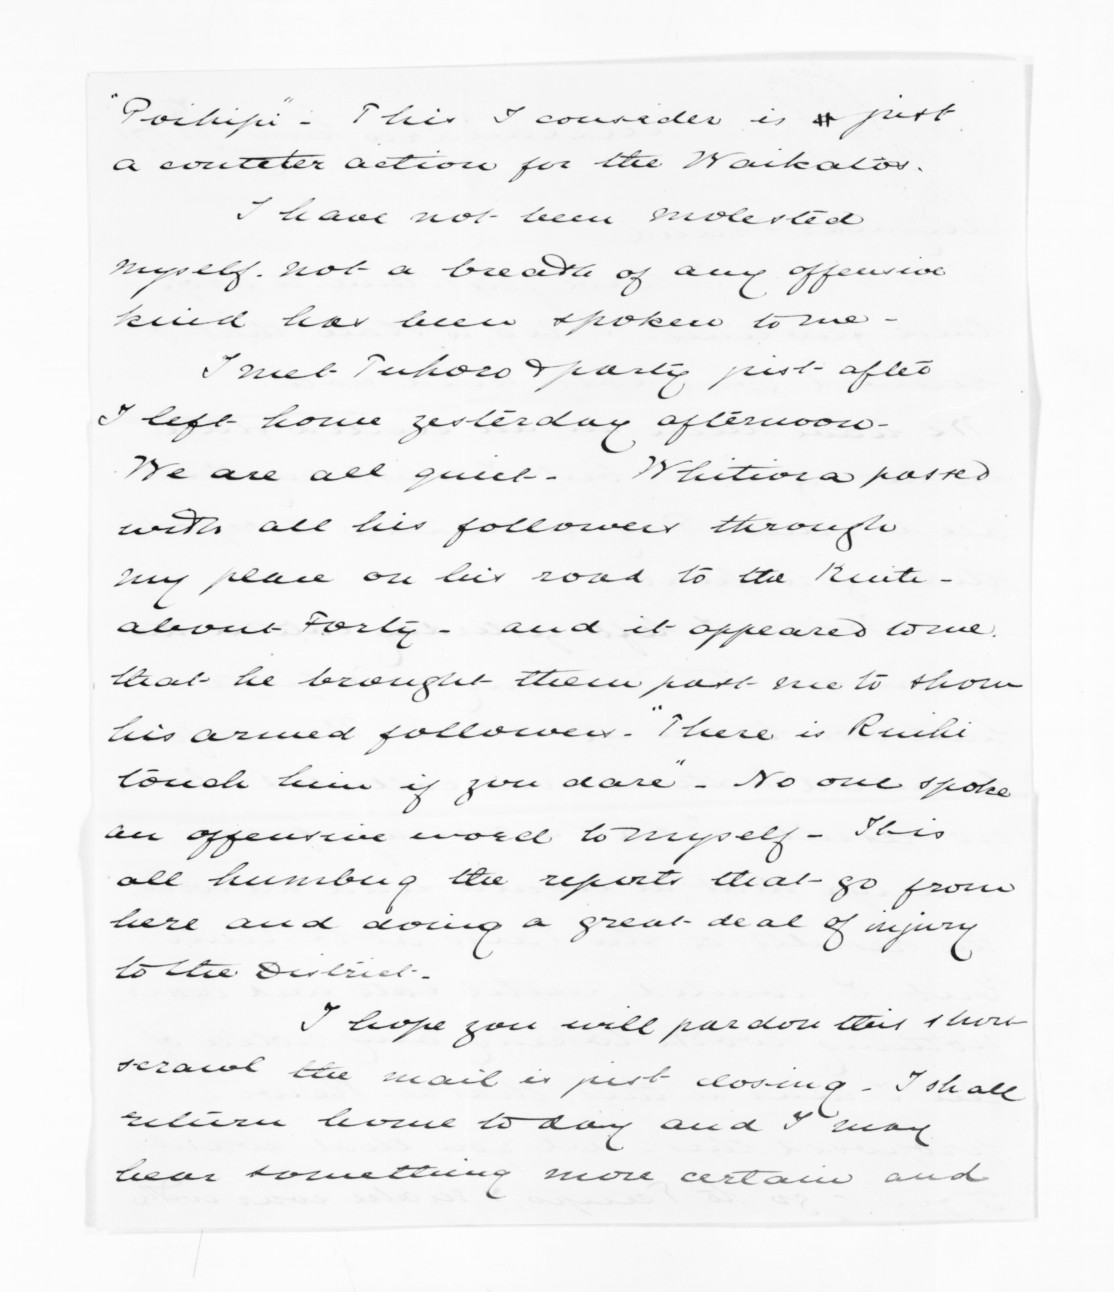 "Poihipi" - This I consider is just
a counter action for the Waikatos.
I have not been molested
myself. not a breath of any offensive
kind has been spoken to me -
I met Tuhoro & party just after
I left home yesterday afternoon -
We are all quiet - Whitiora passed
with all his followers through
my place on his road to the Kuiti -
about Forty - and it appeared to me
that he brought them past me to show
his armed followers - "There is Ruihi
touch him if you dare" - No one spoke
an offensive word to myself - This
all humbug the reports that go from
here and doing a great deal of injury
to the District -
I hope you will pardon this short
scrawl the mail is just closing - I shall
return home to day and I may
hear something more certain and